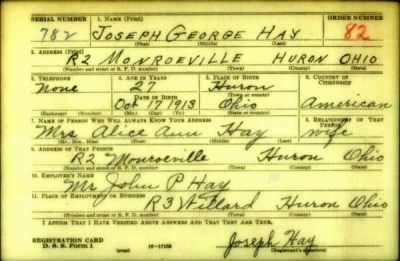 SERIAL NUMBER 1. NAME (Print) ORDER NUMBER
782 JOSEPH GEORGE HAY 82
(First) (Middle) (Last)
2. ADDRESS (Print)
R2 MONROEVILLE HURON OHIO
(Number and street or R. F. D. number) (Town) (County) (State)
3. TELEPHONE 4. AGE IN YEARS 5. PLACE OF BIRTH 6. COUNTRY OF CITIZENSHIP
None 27 Huron
DATE OF BIRTH (Town or county)
Oct 17 1913 Ohio American
(Exchange) (Number) (Mo.) (Day) (Yr.) (State or country)
7. NAME OF PERSON WHO WILL ALWAYS KNOW YOUR ADDRESS 8. RELATIONSHIP OF THAT PERSON
Mrs Alice Ann Hay wife
(Mr., Mrs., Miss) (First) (Middle) (Last)
9. ADDRESS OF THAT PERSON
R2 Monroeville Huron Ohio
(Number and street or R. F. D. number) (Town) (County) (State)
10. EMPLOYER'S NAME
Mr John P Hay
11. PLACE OF EMPLOYMENT OR BUSINESS
R3 Willard Huron Ohio
(Number and street or R. F. D. number) (Town) (County) (State)
I AFFIRM THAT I HAVE VERIFIED ABOVE ANSWERS AND THAT THEY ARE TRUE.
REGISTRATION CARD
D. S. S. Form 1 (over) Joseph Hay
(Registrant's signature)